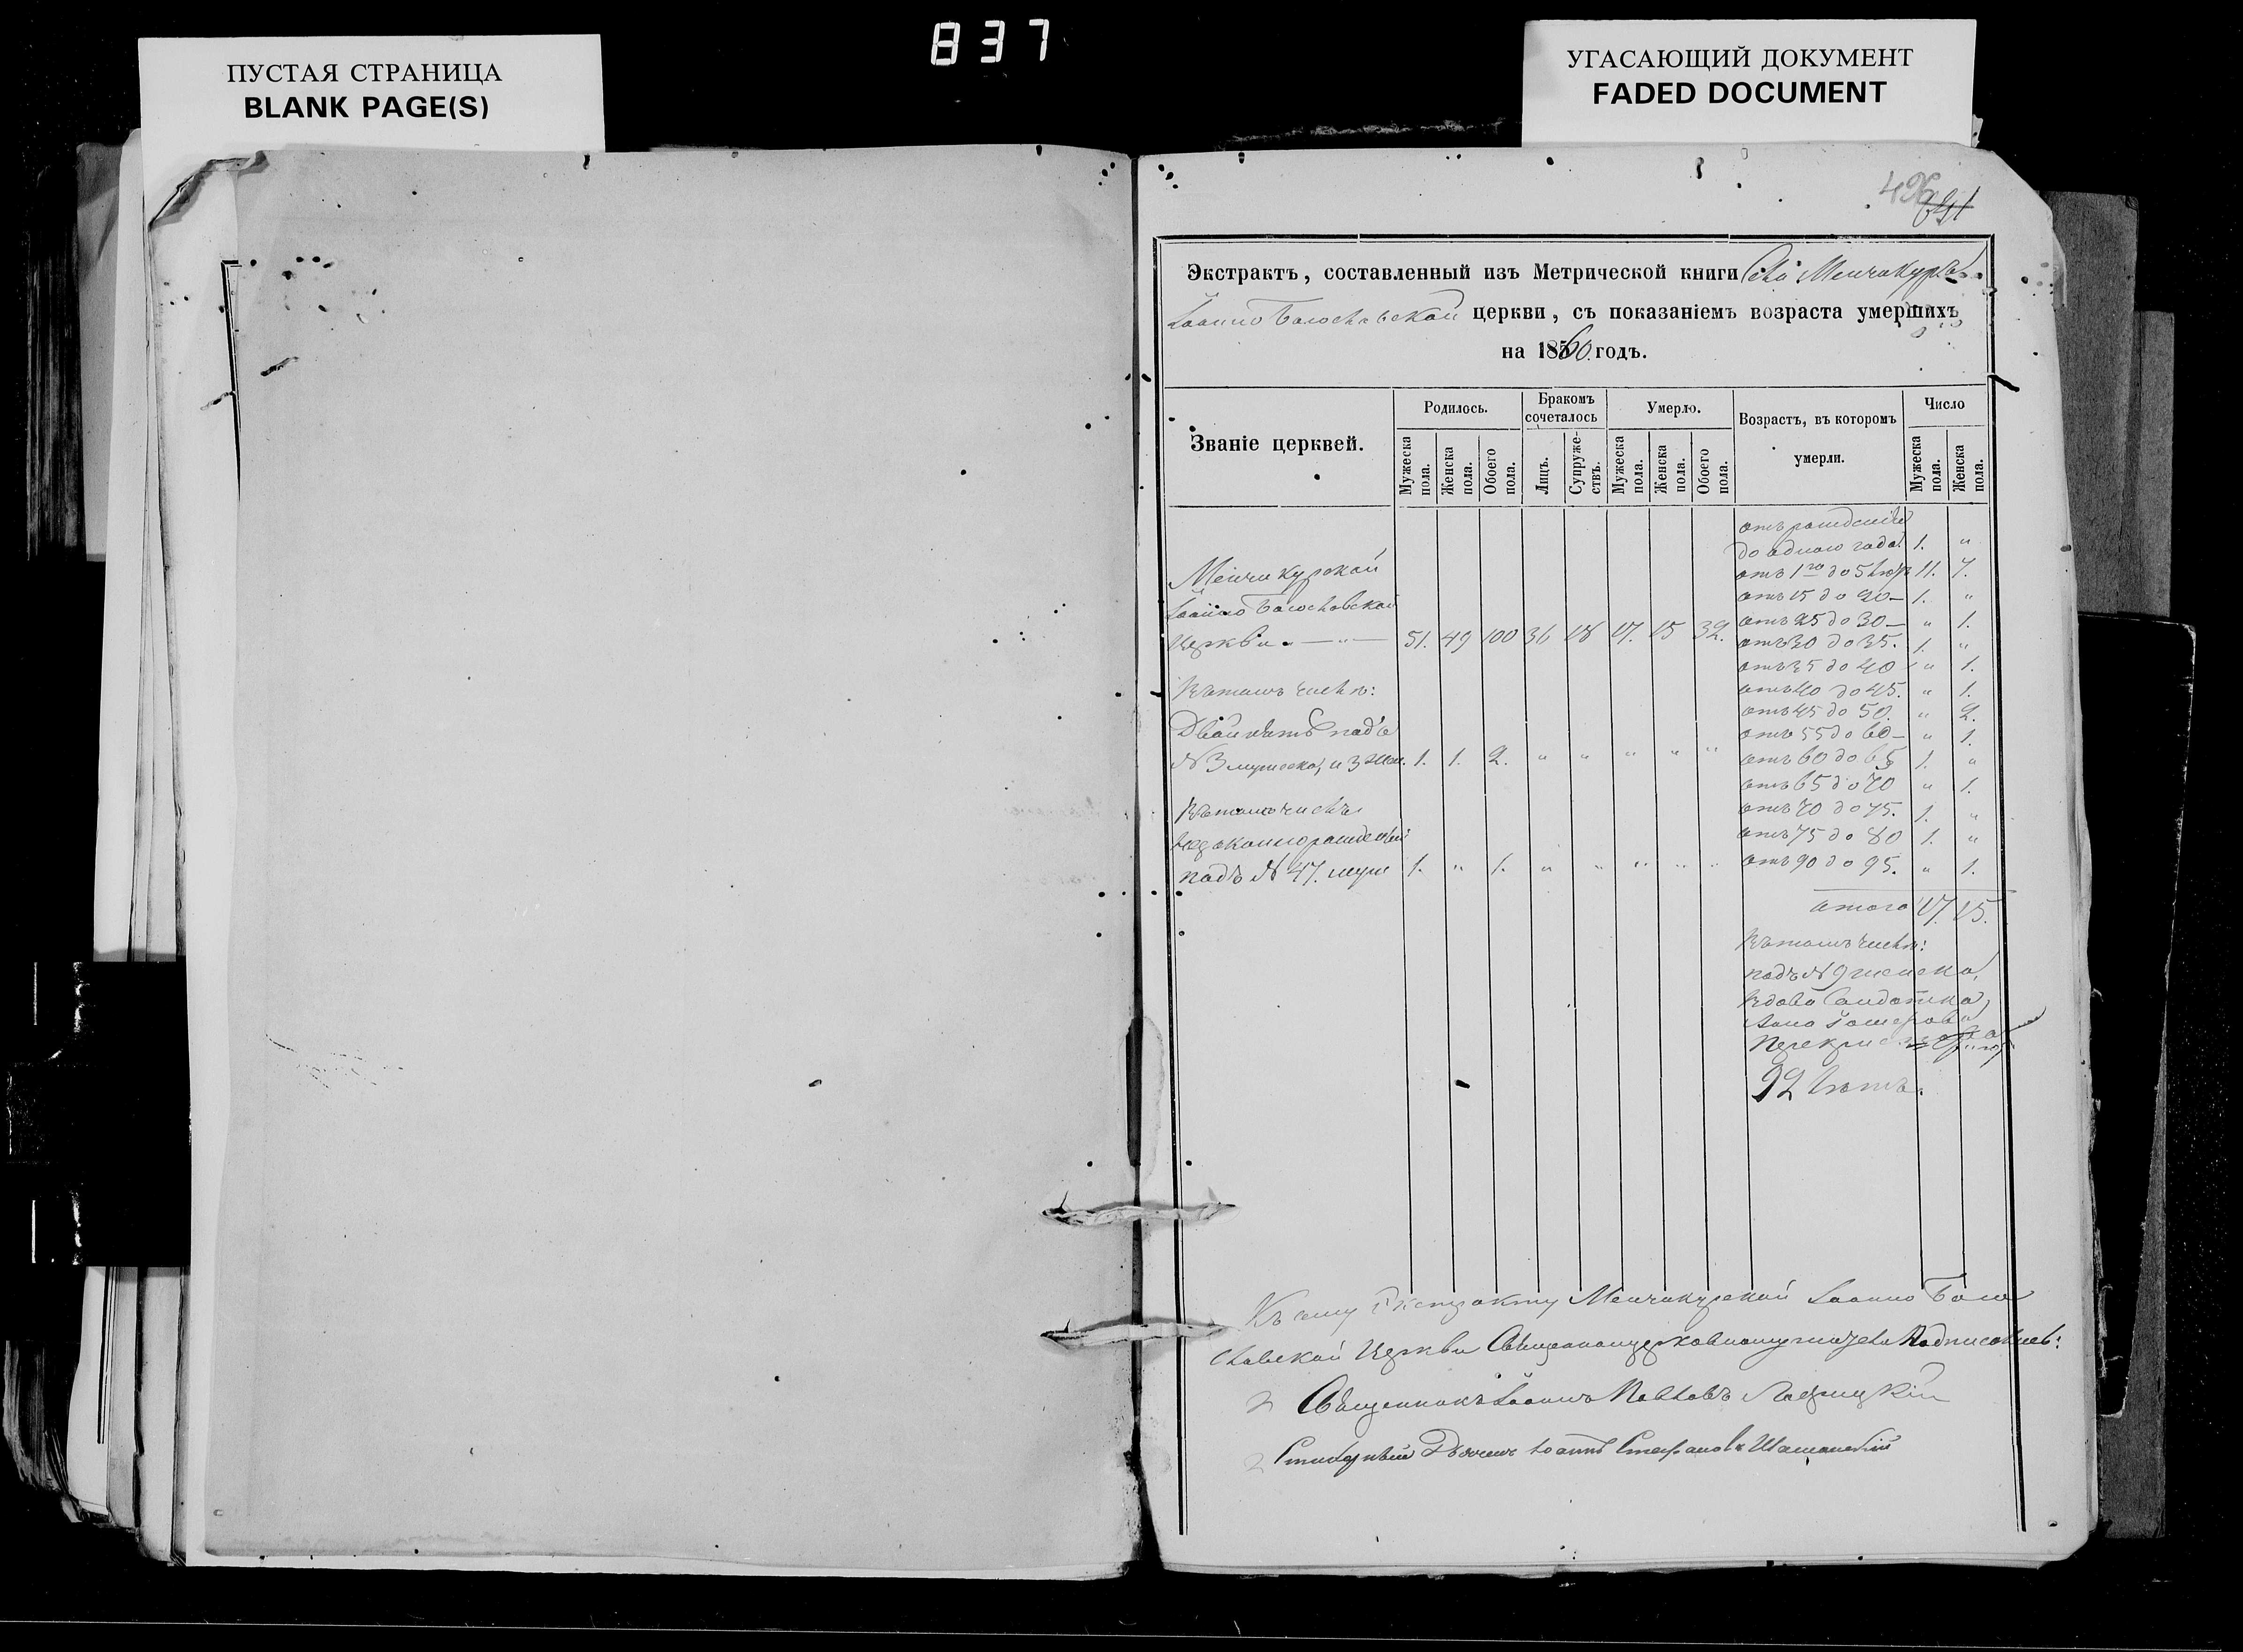 837
ПУСТАЯ СТРАНИЦА
BLANK PAGE(S)
УГАСАЮЩИЙ ДОКУМЕНТ
FADED DOCUMENT
496
Экстрактъ, составленный изъ Метрической книги Села Менчикуръ
Іоанно Богословской церкви, съ показаніемъ возраста умершихъ
на 1860 годъ.
Званіе церквей.
Родилось.
Бракомъ сочеталось
Умерло.
Возрастъ, въ которомъ умерли.
Число
Мужеска пола.
Женска пола.
Обоего пола.
Лицъ.
Супружествъ.
Мужеска пола.
Женска пола.
Обоего пола.
Мужеска пола.
Женска пола.
Менчикурской
Іоанно Богословской
Церкви — " — 51. 49 100 36 18 17. 15 32.
Въ томъ числѣ:
Двойнятъ подъ
№ 3 мужеска, и 3 жен. 1. 1. 2. " " " " "
Въ томъ числѣ
незаконнорожденный
подъ № 47. муж 1. " 1. " " " " "
отъ рожденія
до одного года 1. "
отъ 1го до 5 лѣтъ 11. 7.
отъ 15 до 20 — 1. "
отъ 25 до 30 — " 1.
отъ 30 до 35. 1. "
отъ 35 до 40 " 1.
отъ 40 до 45. " 1.
отъ 45 до 50. " 2.
отъ 55 до 60 — " 1.
отъ 60 до 65 1. "
отъ 65 до 70 " 1.
отъ 70 до 75. 1. "
отъ 75 до 80 1. "
отъ 90 до 95. " 1.
итого 17. 15.
Въ томъ числѣ:
подъ № 9 женска,
вдова Солдатка,
92 лѣтъ.
Къ сему Экстракту Менчикурской Іоанно Бого
словской Церкви Священноцерковнослужители Подписались:
Священникъ Іоаннъ Павловъ
Стихарный Дьячекъ Іоаннъ Стефановъ